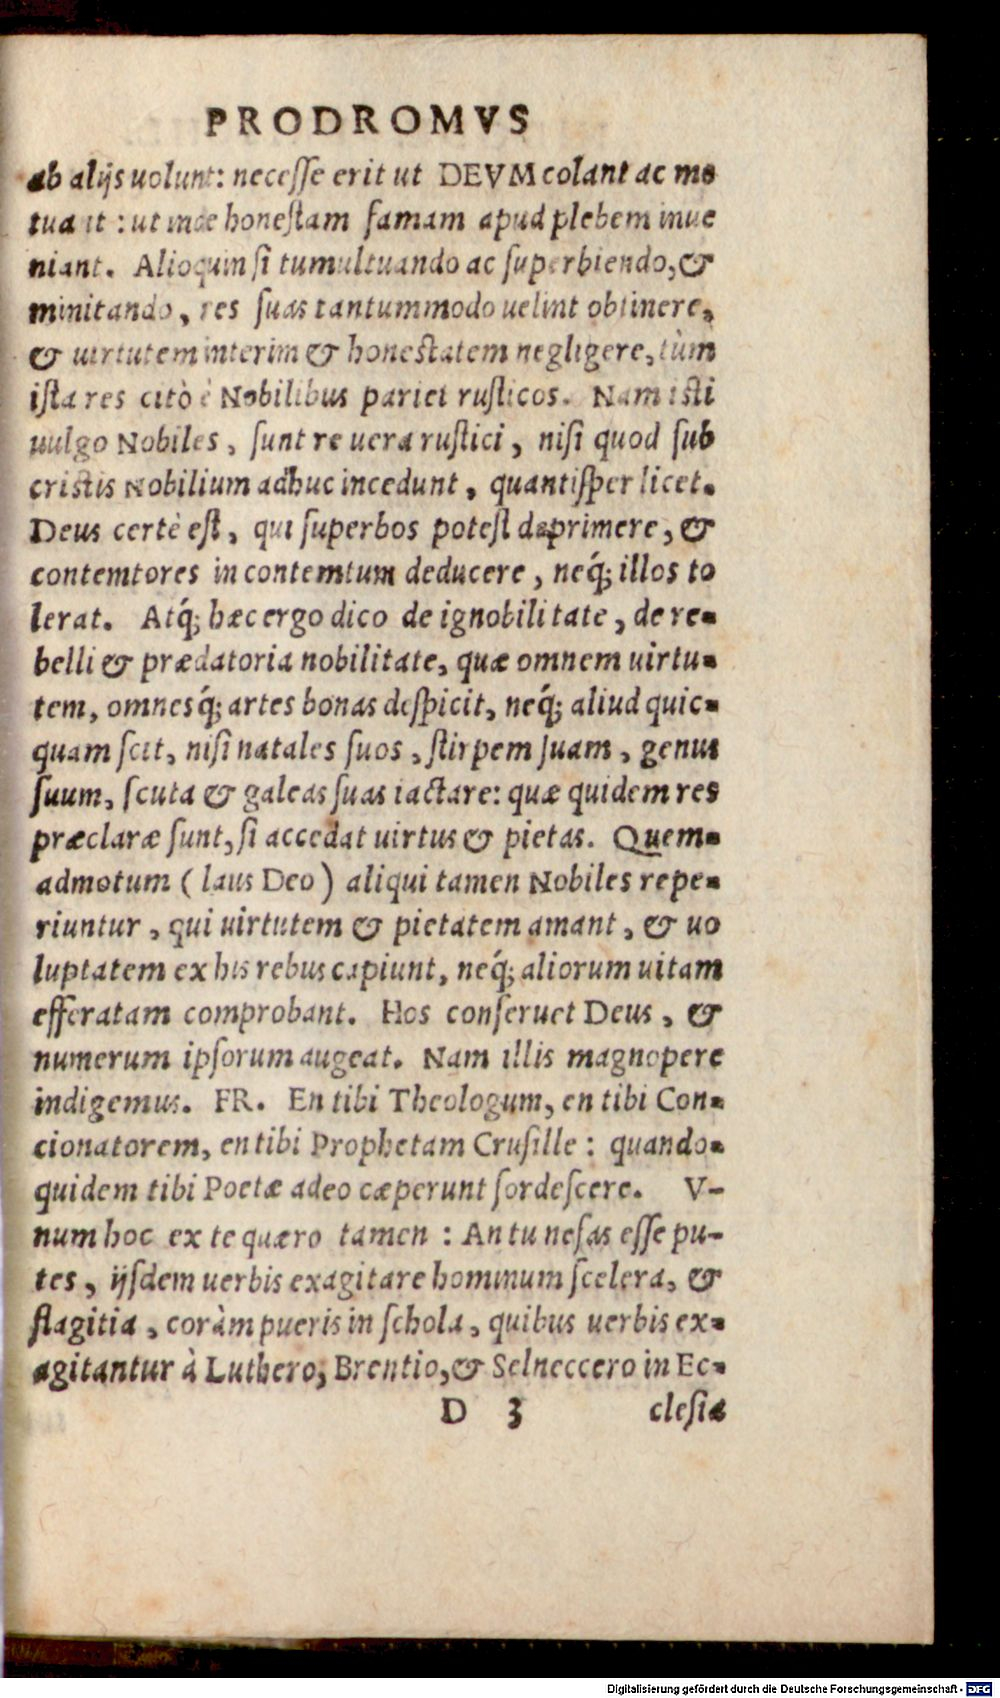 PRODROMVS
ab alijs uolunt: necesse erit ut DEVM colant ac me
tuant: ut inde honestam famam apud plebem inue
niant. Alioquin si tumultuando ac superbiendo, &
minitando, res suas tantummodo uelint obtinere,
& uirtutem interim & honestatem negligere, tùm
ista res citò è Nobilibus pariet rusticos. Nam isti
uulgo Nobiles, sunt re uera rustici, nisi quod sub
cristis Nobilium adhuc incedunt, quantisper licet.
Deus certè est, qui superbos potest deprimere, &
contemtores in contemtum deducere, neq́; illos to
lerat. Atq́; hæc ergo dico de ignobilitate, de re-
belli & prædatoria nobilitate, quæ omnem uirtu-
tem, omnesq́; artes bonas despicit, neq́; aliud quic-
quam scit, nisi natales suos, stirpem suam, genus
suum, scuta & galeas suas iactare: quæ quidem res
præclaræ sunt, si accedat uirtus & pietas. Quem-
admotum (laus Deo) aliqui tamen Nobiles repe-
riuntur, qui uirtutem & pietatem amant, & uo
luptatem ex his rebus capiunt, neq́; aliorum uitam
efferatam comprobant. Hos conseruet Deus, &
numerum ipsorum augeat. Nam illis magnopere
indigemus. FR. En tibi Theologum, en tibi Con-
cionatorem, en tibi Prophetam Crusille: quando-
quidem tibi Poetæ adeo cæperunt sordescere. V-
num hoc ex te quæro tamen: An tu nefas esse pu-
tes, ijsdem uerbis exagitare hominum scelera, &
flagitia, coràm pueris in schola, quibus uerbis ex-
agitantur à Luthero, Brentio, & Selneccero in Ec-
D 3 clesia
Digitalisierung gefördert durch die Deutsche Forschungsgemeinschaft - DFG